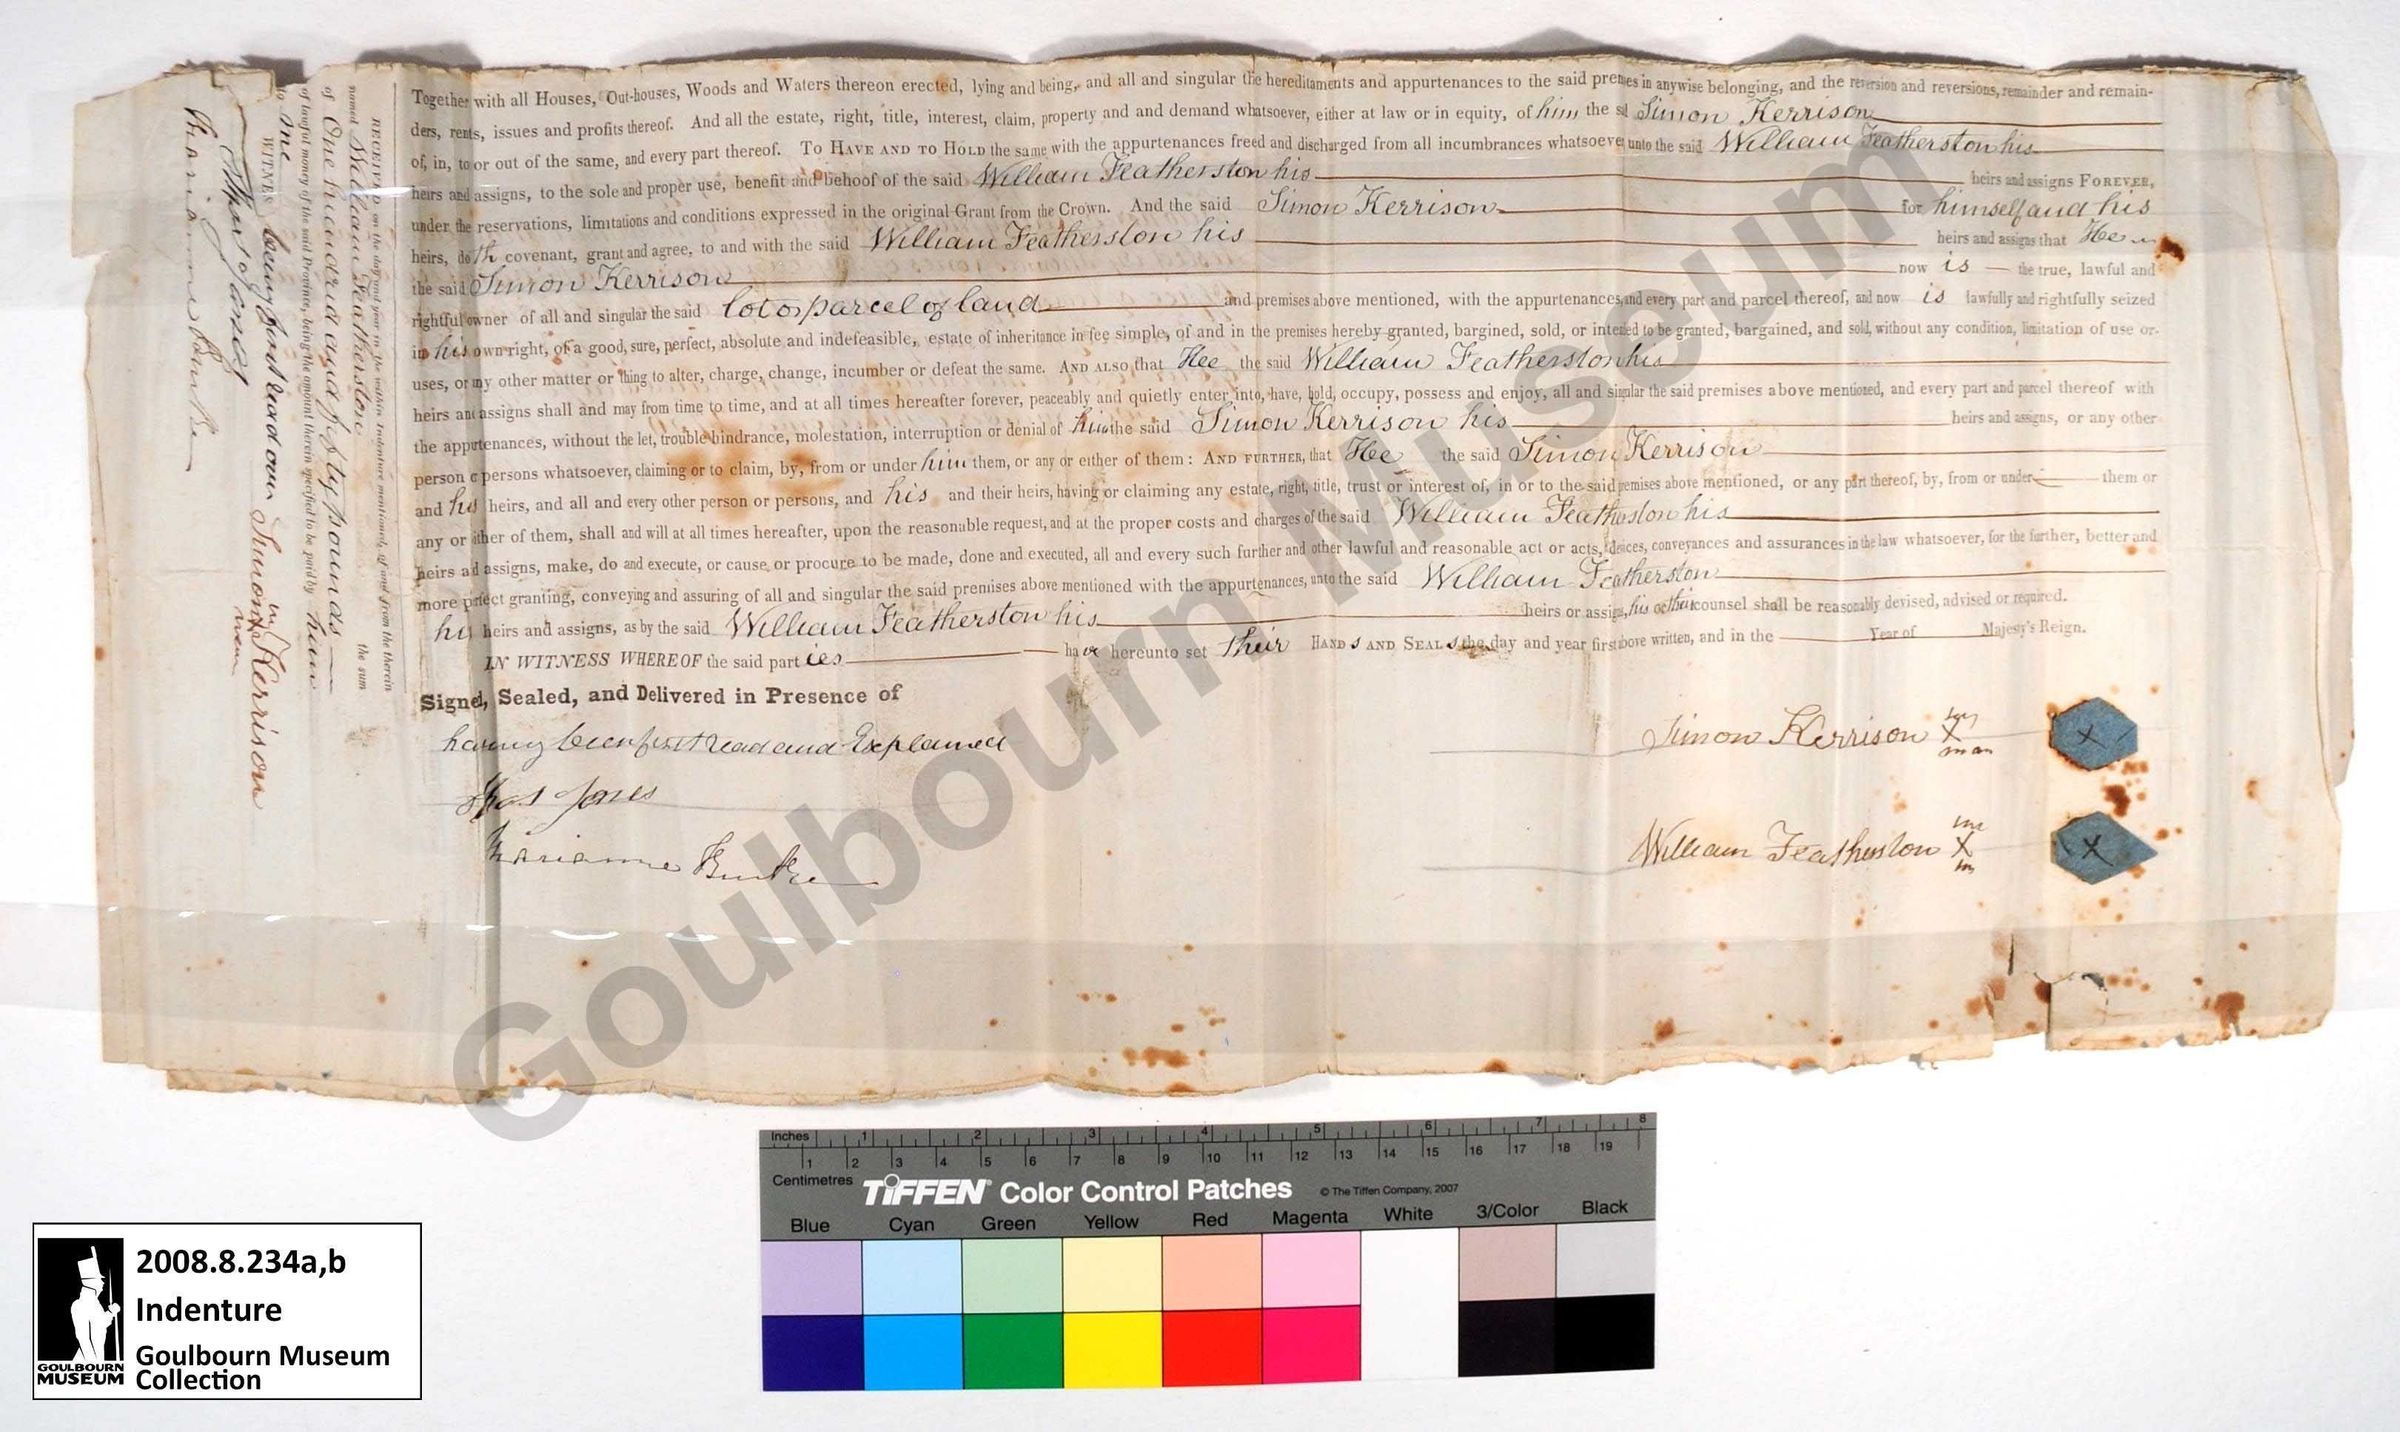 Together with all Houses, Out-houses, Woods and Waters thereon erected, lying and being, and all and singular the hereditaments and appurtenances to the said premises in anywise belonging, and the reversion and reversions, remainder and remain-
ders, rents, issues and profits thereof. And all the estate, right, title, interest, claim, property and and demand whatsoever, either at law or in equity, of him the sd Simon Kerrison
of, in, to or out of the same, and every part thereof. To HAVE AND TO HOLD the same with the appurtenances freed and discharged from all incumbrances whatsoever unto the said William Featherston his
heirs and assigns, to the sole and proper use, benefit and behoof of the said William Featherston his heirs and assigns FOREVER,
under the reservations, limitations and conditions expressed in the original Grant from the Crown. And the said Simon Kerrison for himself and his
heirs, doth covenant, grant and agree, to and with the said William Featherston his heirs and assigns that He
the said Simon Kerrison now is the true, lawful and
rightful owner of all and singular the said lot or parcel of land and premises above mentioned, with the appurtenances, and every part and parcel thereof, and now is lawfully and rightfully seized
in his own right, of a good, sure, perfect, absolute and indefeasible, estate of inheritance in fee simple, of and in the premises hereby granted, bargined, sold, or intended to be granted, bargained, and sold, without any condition, limitation of use or
uses, or any other matter or thing to alter, charge, change, incumber or defeat the same. AND ALSO that Hee the said William Featherston his
heirs and assigns shall and may from time to time, and at all times hereafter forever, peaceably and quietly enter into, have, hold, occupy, possess and enjoy, all and singular the said premises above mentioned, and every part and parcel thereof with
the appurtenances, without the let, trouble hindrance, molestation, interruption or denial of him the said Simon Kerrison his heirs and assigns, or any other
person or persons whatsoever, claiming or to claim, by, from or under him them, or any or either of them: AND FURTHER, that Hee the said Simon Kerrison
and his heirs, and all and every other person or persons, and his and their heirs, having or claiming any estate, right, title, trust or interest of, in or to the said premises above mentioned, or any part thereof, by, from or under them or
any or either of them, shall and will at all times hereafter, upon the reasonable request, and at the proper costs and charges of the said William Featherston his
heirs and assigns, make, do and execute, or cause or procure to be made, done and executed, all and every such further and other lawful and reasonable act or acts, devices, conveyances and assurances in the law whatsoever, for the further, better and
more perfect granting, conveying and assuring of all and singular the said premises above mentioned with the appurtenances, unto the said William Featherston
his heirs and assigns, as by the said William Featherston his heirs or assigns, his or their counsel shall be reasonably devised, advised or required.
IN WITNESS WHEREOF the said parties have hereunto set their HANDs AND SEALs the day and year first above written, and in the Year of Majesty's Reign.
Signed, Sealed, and Delivered in Presence of
having been first read and Explained
Thos Jones
Marianne Burke
Simon Kerrison X
man
X
William Featherston X
X
RECEIVED on the day and year in the within Indenture mentioned, of and from the therein
named William Featherston the sum
of One hundred and fifty pounds
of lawful money of the said Province, being the amount therein specified to be paid by him
to me
WITNESS being first read over Simon X Kerrison
Thos Jones
Marianne Burke
Goulbourn Museum
Inches 1 2 3 4 5 6 7 8
1 2 3 4 5 6 7 8 9 10 11 12 13 14 15 16 17 18 19
Centimetres
TIFFEN Color Control Patches © The Tiffen Company, 2007
Blue Cyan Green Yellow Red Magenta White 3/Color Black
2008.8.234a,b
Indenture
Goulbourn Museum
Collection
GOULBOURN
MUSEUM